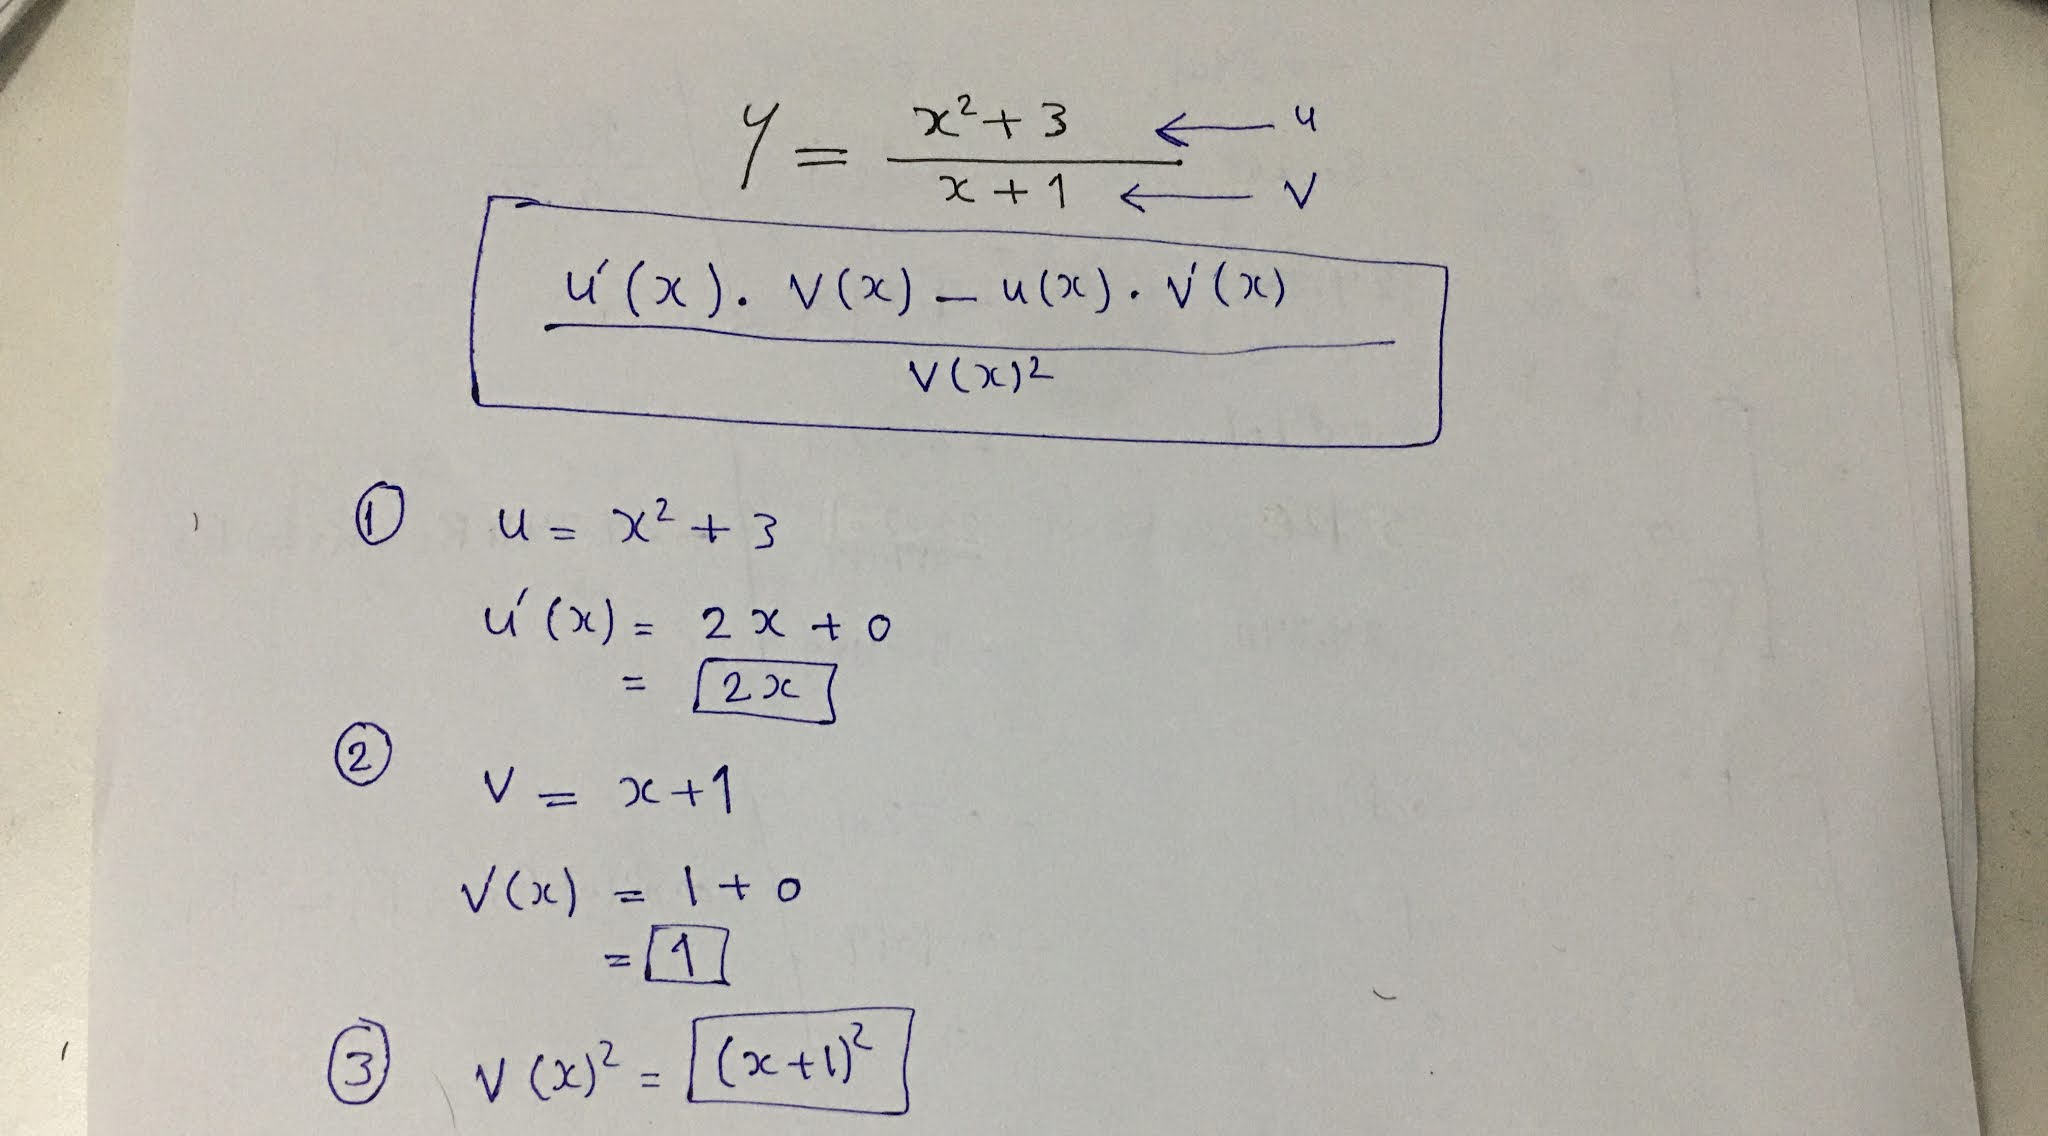 y = x² + 3 ← u
x + 1 ← v
u'(x) . v(x) - u(x) . v'(x)
v(x)²
① u = x² + 3
u'(x) = 2x + 0
= 2x
② v = x+1
v(x) = 1 + 0
= 1
③ v(x)² = (x+1)²